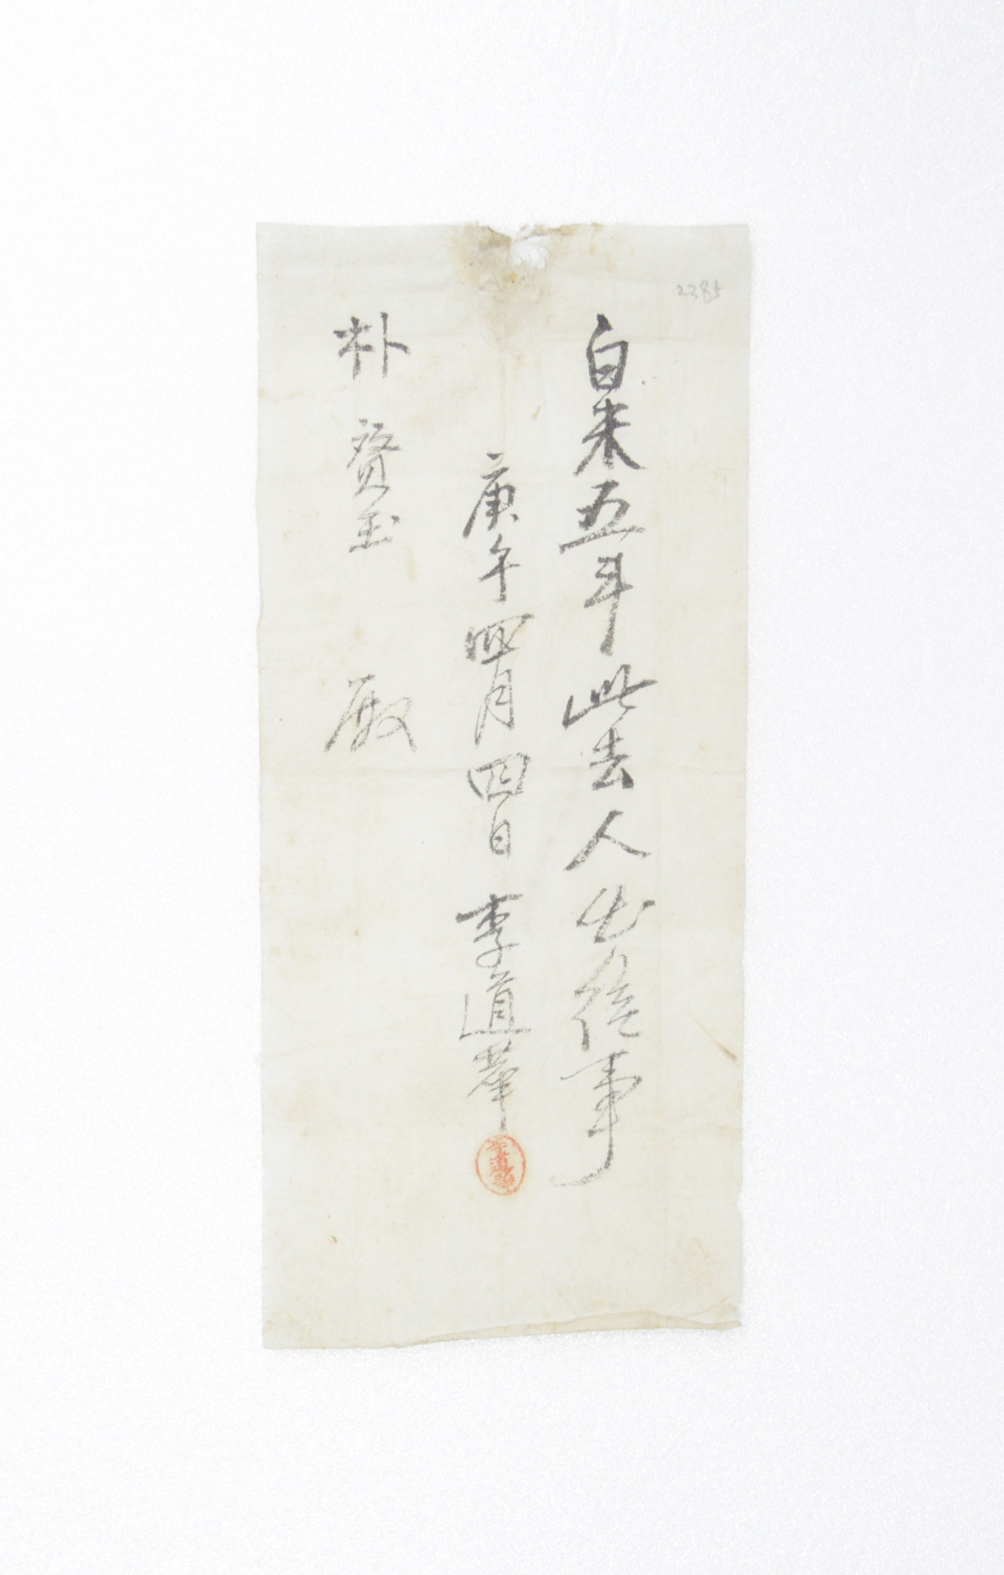 2385
白米五斗此去人出給事
庚午四月四日 李道華
朴贊玉 殿